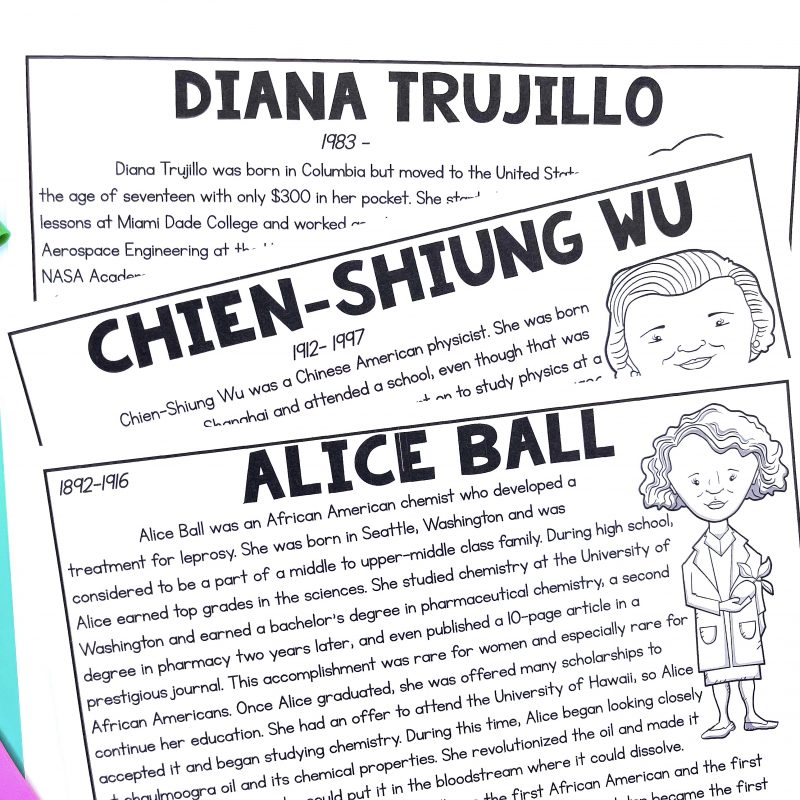 DIANA TRUJILLO
1983 -
Diana Trujillo was born in Columbia but moved to the United
the age of seventeen with only $300 in her pocket. She
lessons at Miami Dade College and worked
Aerospace Engineering at
NASA
CHIEN-SHIUNG WU
1912- 1997
Chien-Shiung Wu was a Chinese American physicist. She was born
Shanghai and attended a school, even though that was
on to study physics at a
ALICE BALL
1892-1916
Alice Ball was an African American chemist who developed a
treatment for leprosy. She was born in Seattle, Washington and was
considered to be a part of a middle to upper-middle class family. During high school,
Alice earned top grades in the sciences. She studied chemistry at the University of
Washington and earned a bachelor's degree in pharmaceutical chemistry, a second
degree in pharmacy two years later, and even published a 10-page article in a
prestigious journal. This accomplishment was rare for women and especially rare for
African Americans. Once Alice graduated, she was offered many scholarships to
continue her education. She had an offer to attend the University of Hawaii, so Alice
accepted it and began studying chemistry. During this time, Alice began looking closely
chaulmoogra oil and its chemical properties. She revolutionized the oil and made it
could put it in the bloodstream where it could dissolve.
the first African American and the first
became the first